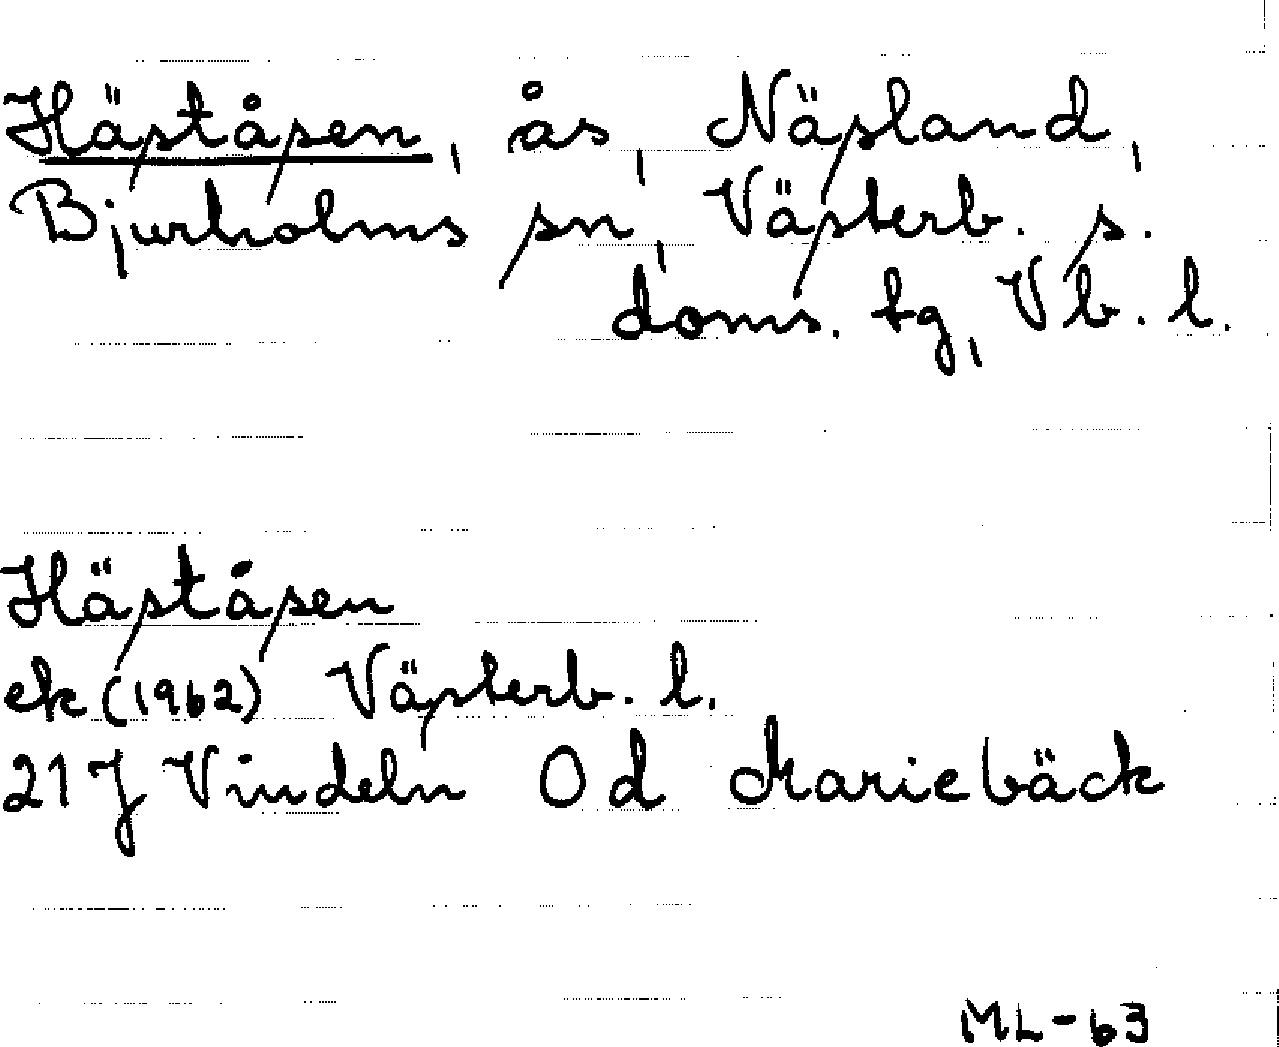 Häståsen, ås, Näsland,
Bjurholms sn, Västerb. s.
doms. tg, Vb. l.
Häståsen
ek (1962) Västerb. l.
21 J Vindeln 0 d Mariebäck
ML-63